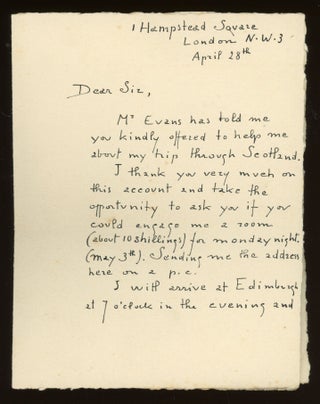 1 Hampstead Square
London N.W.3
April 28th
Dear Sir,
Mr Evans has told me
you kindly offered to help me
about my trip through Scotland.
I thank you very much on
this account and take the
opportunity to ask you if you
could engage me a room
(about 10 shillings) for monday night.
(may 3th). Sending me the address
here on a p.c.
I will arrive at Edimburgh
at 7 o'clock in the evening and